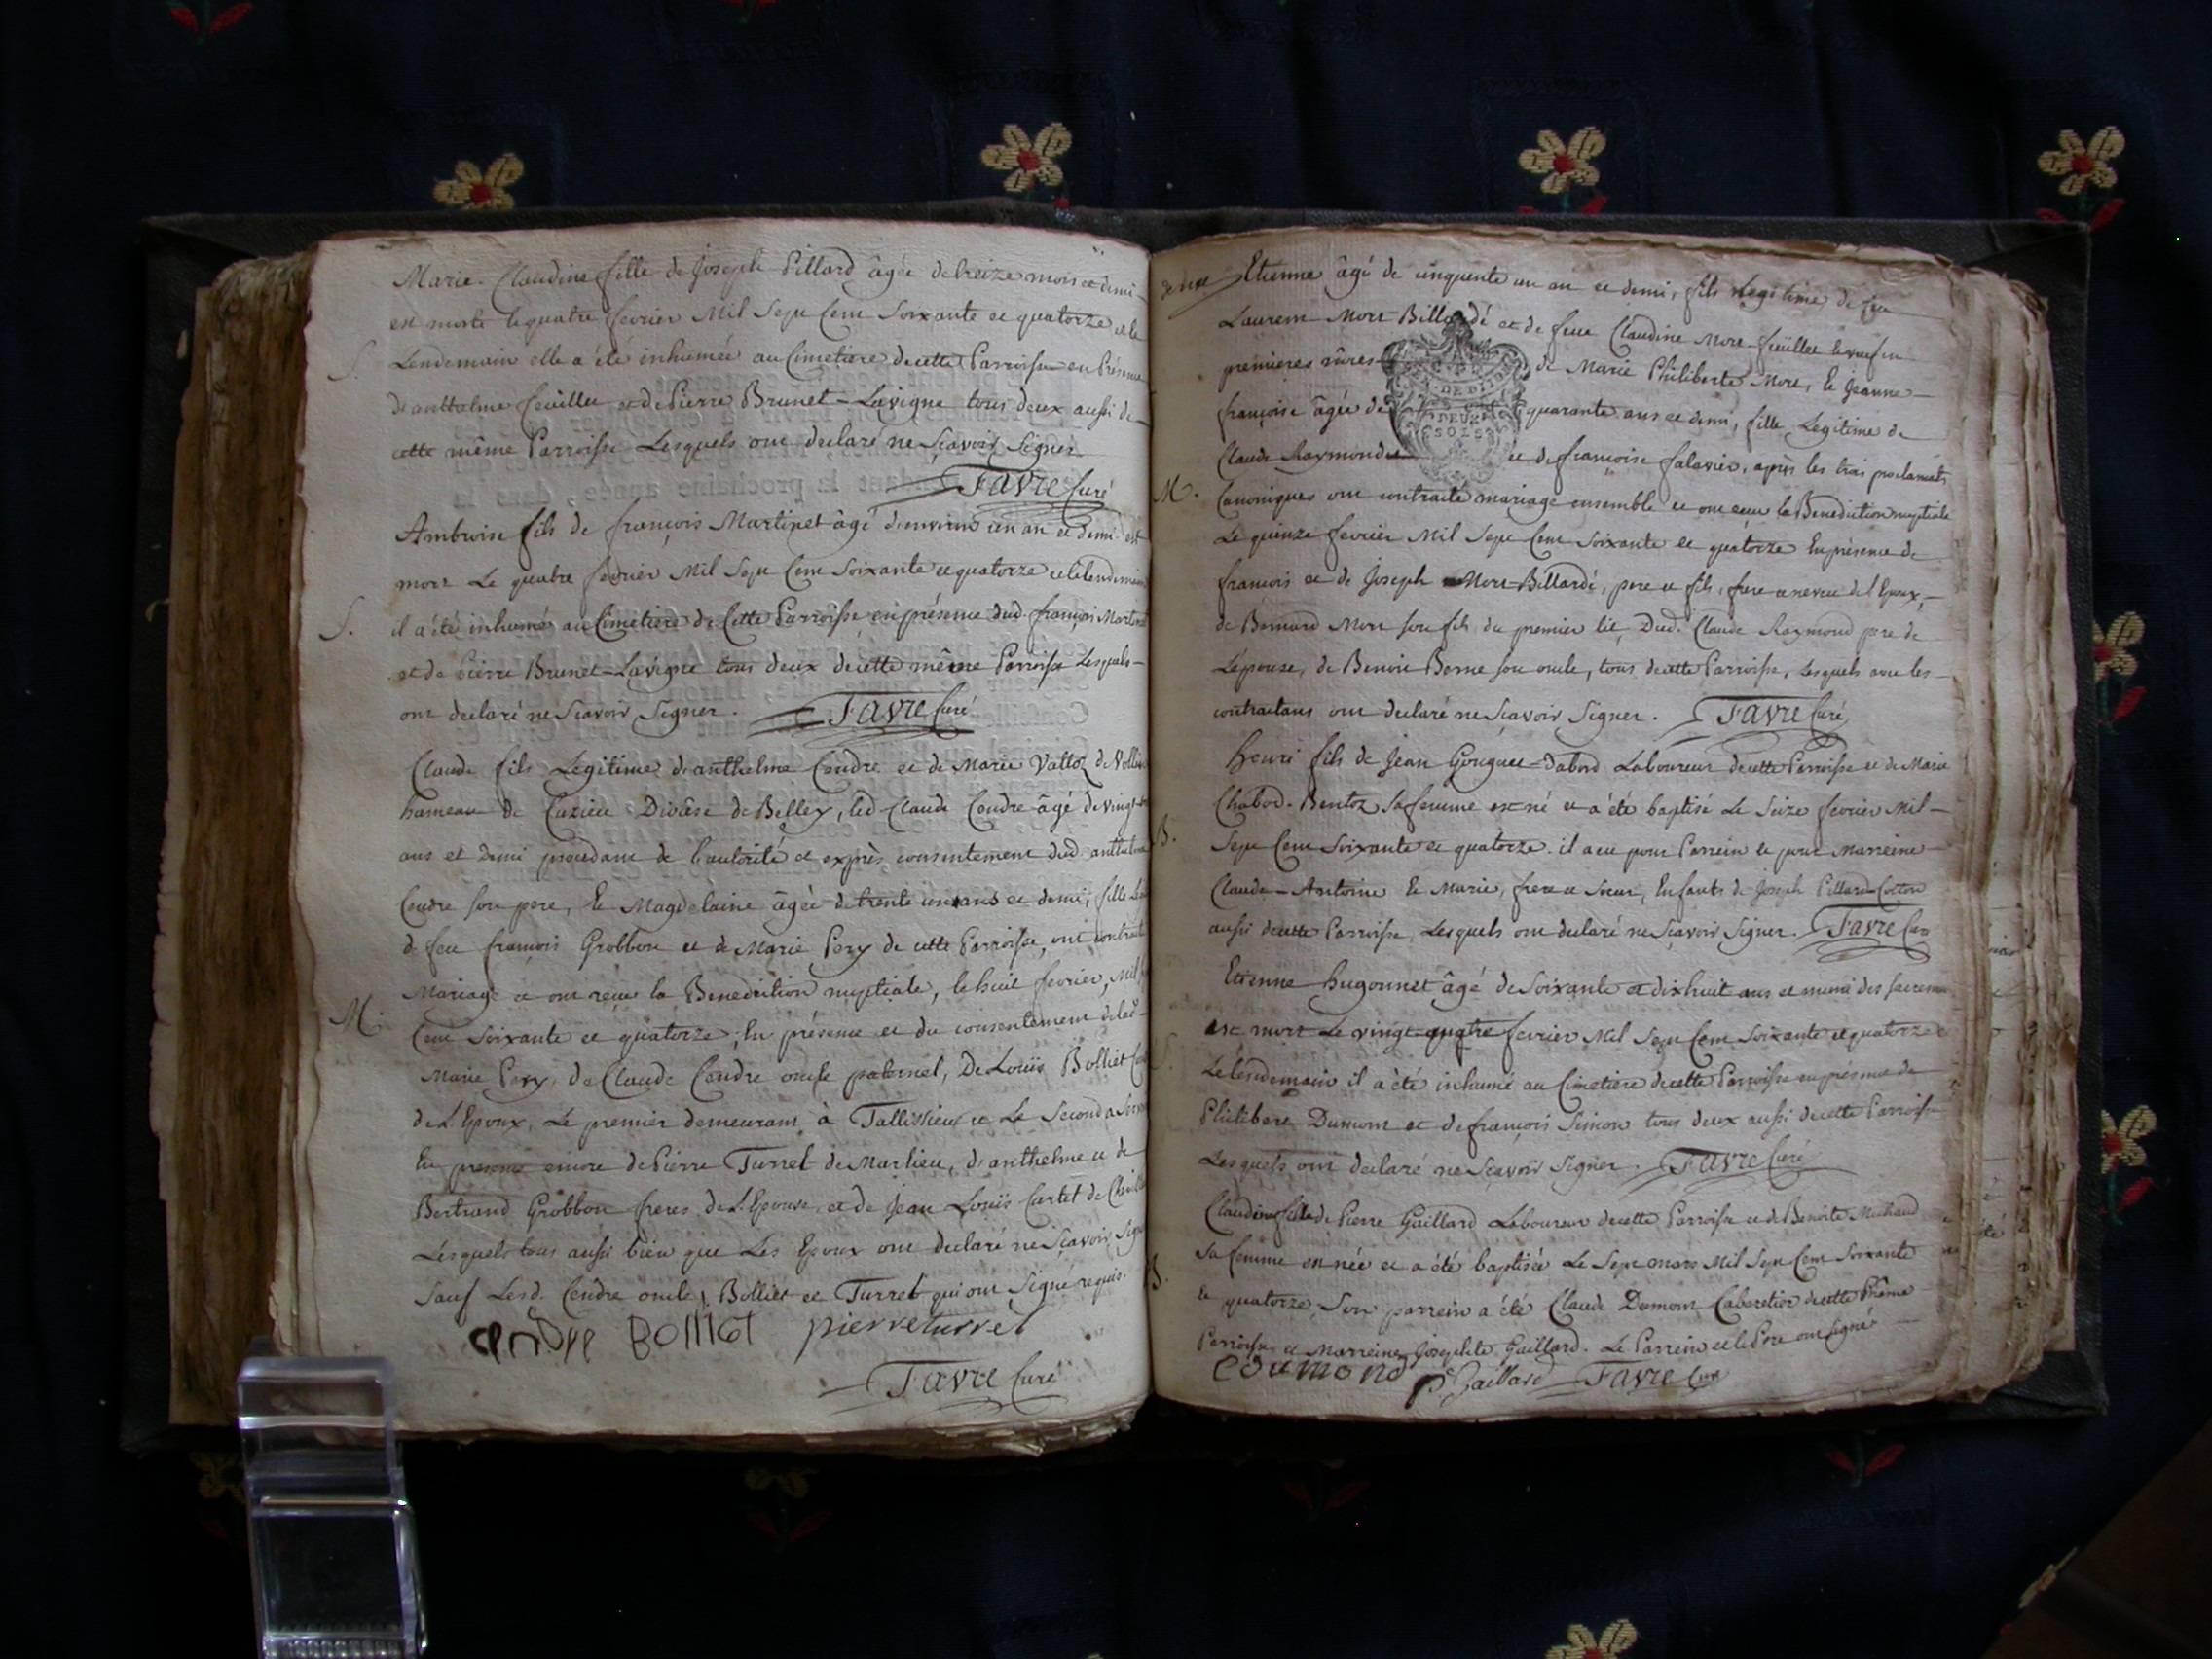 Marie-Claudine fille de Joseph Pillard âgée de treize mois et demi
est morte le quatre fevrier Mil Sept Cent Soixante et quatorze et le
Lendemain elle a été inhumée au Cimetiere de cette Parroisse en Présence
S.
d'anthelme feüillet et de Pierre Brunet-Lavigne tous deux aussi de
cette même Parroisse Lesquels ont declaré ne Sçavoir Signer
Favre Curé
Ambroise fils de françois Martinet âgé d'environ un an et demi est
mort Le quatre fevrier Mil Sept Cent Soixante et quatorze et le lendemain
S.
il a été inhumé au Cimetiere de Cette Parroisse en présence dud. françois Martinet
et de Pierre Brunet-Lavigne tous deux de cette même Parroisse Lesquels
ont declaré ne Sçavoir Signer. Favre Curé
Claude fils Légitime d'anthelme Cendre et de Marie Valloz de
hameau de Cuzieu Diocèse de Belley, led. Claude Cendre âgé de vingt
ans et demi procedant de l'autorité et exprès consentement dud. anthelme
Cendre son pere, Et Magdelaine âgée de trente ans et demi, fille
de feu françois Grobbon et de Marie Pery de cette Parroisse, ont contracté
Mariage et ont reçu la Benediction nuptiale, le huit fevrier, Mil
M.
Cent Soixante et quatorze; En présence et du consentement de lad.
Marie Pery, de Claude Cendre oncle paternel, De Loüis Bolliet
de L'Epoux, Le premier demeurant à Tallissieu et Le Second a
En presence encore de Pierre Turrel de Marlieu, d'anthelme et de
Bertrand Grobbon freres de L'Epouse, et de Jean Loüis Cartet de
Lesquels tous aussi bien que Les Epoux ont declaré ne Sçavoir Signer
Sauf Lesd. Cendre oncle, Bolliet et Turrel qui ont Signé requis.
cendre Bolliet pierre turrel
Favre Curé
Etienne âgé de cinquante un an et demi, fils Légitime de feu
Laurent Mort-Billardé et de feue Claudine Mort-feüillet Et veuf en
premieres nôces de Marie Philiberte Mort, Et Jeanne
françoise âgée de quarante ans et demi, fille Légitime de
DEUX SOLS
Claude Raymond et de françoise falavier, après les trois proclamats
M.
Canoniques ont contracté mariage ensemble et ont reçu la Benediction nuptiale
Le quinze fevrier Mil Sept Cent Soixante et quatorze En présence de
françois et de Joseph Mort-Billardé, pere et fils, frere et neveu de l'Epoux,
de Bernard Mort son fils du premier lit, Dud. Claude Raymond pere de
L'épouse, de Benoit Berne son oncle, tous de cette Parroisse, Lesquels avec les
contractans ont declaré ne Sçavoir Signer. Favre Curé
Henri fils de Jean Gonguet-Dabord Laboureur de cette Parroisse et de Marie
Chabod-Bentoz Sa femme est né et a été baptisé Le Seize fevrier Mil
B.
Sept Cent Soixante et quatorze. il a eu pour Parrein et pour Marreine
Claude-Antoine Et Marie, frere et Soeur, Enfants de Joseph Pillard-Cotton
aussi de cette Parroisse, Lesquels ont declaré ne Sçavoir Signer. Favre Curé
Etienne hugonnet âgé de Soixante et dix huit ans et muni des sacremens
est mort Le vingt-quatre fevrier Mil Sept Cent Soixante et quatorze
Le lendemain il a été inhumé au Cimetiere de cette Parroisse en présence de
Philibert Dumont et de françois Simon tous deux aussi de cette Parroisse
Lesquels ont declaré ne Sçavoir Signer. Favre Curé
Claudine fille de Pierre Gaillard Laboureur de cette Parroisse et de Benoite Michaud
Sa femme est née et a été baptisée Le Sept mars Mil Sept Cent Soixante
B.
et quatorze. Son parrein a été Claude Dumont Cabaretier de cette Même
Parroisse, et Marreine Josephte Gaillard. Le Parrein et le Pere ont Signé
C dumond P. Gaillard Favre Curé